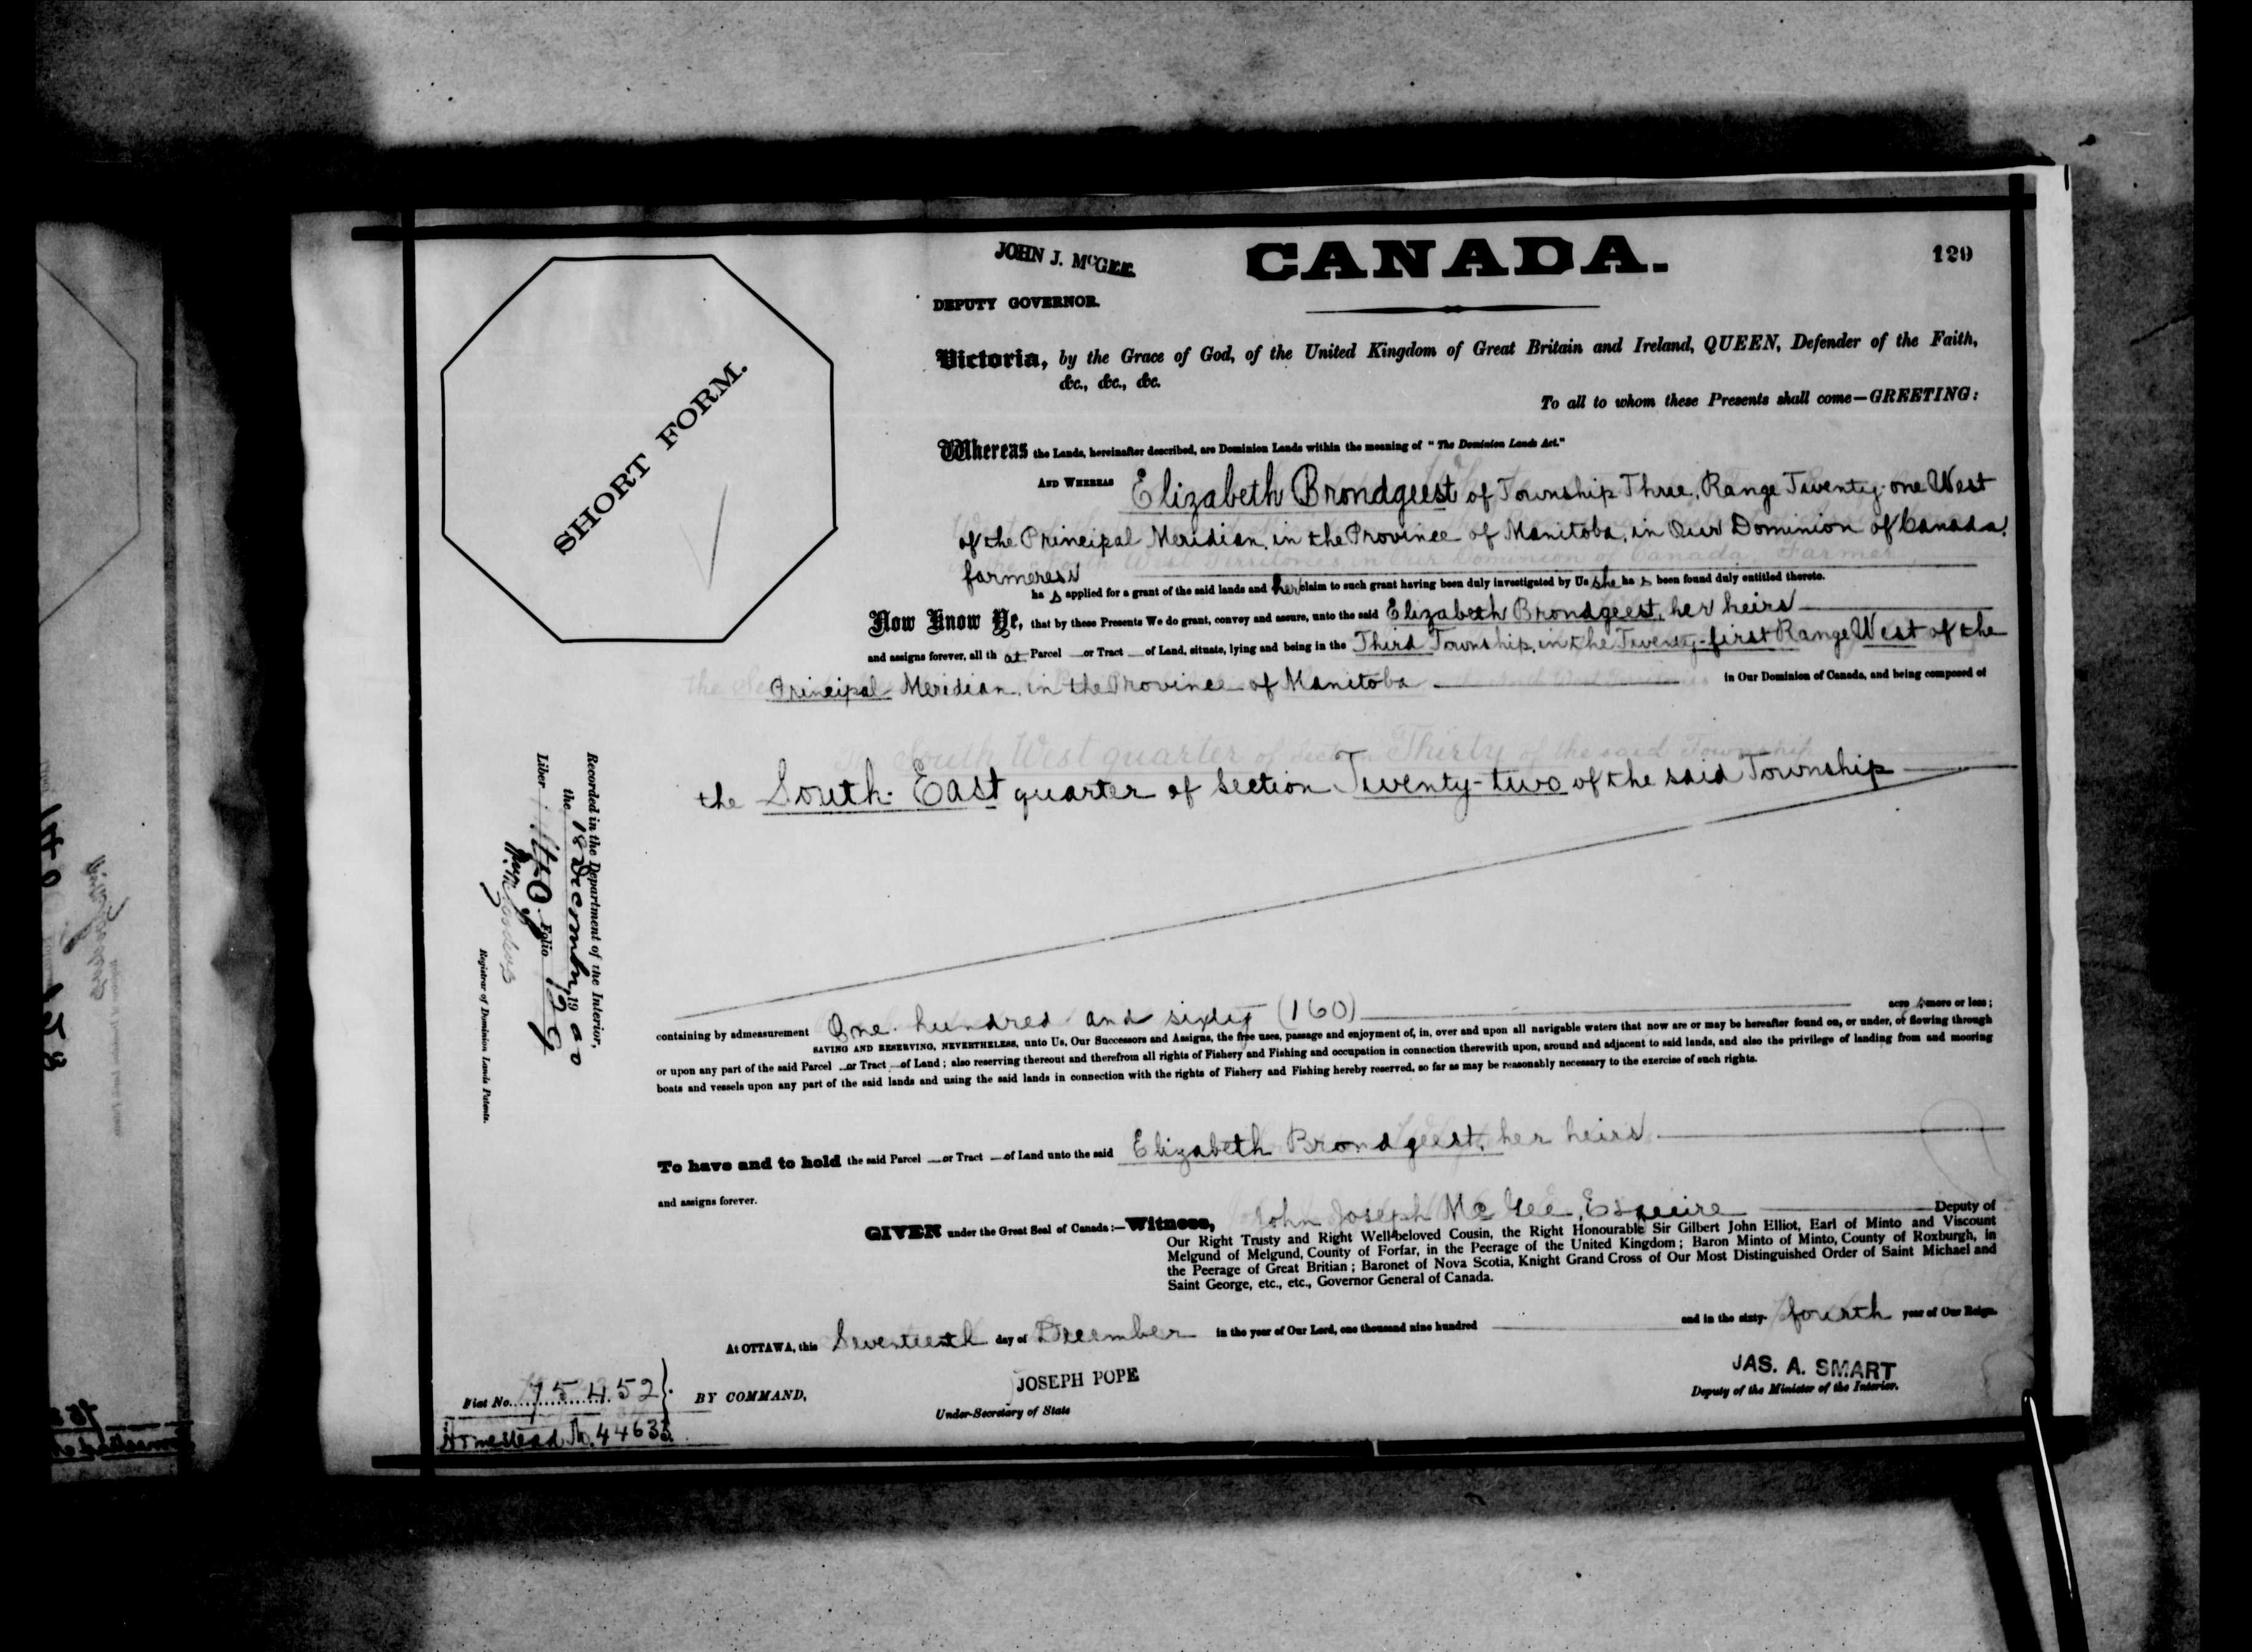 JOHN J. McGEE.
CANADA.
129
DEPUTY GOVERNOR.
SHORT FORM.
Victoria, by the Grace of God, of the United Kingdom of Great Britain and Ireland, QUEEN, Defender of the Faith,
&c., &c., &c.
To all to whom these Presents shall come—GREETING:
Whereas the Lands, hereinafter described, are Dominion Lands within the meaning of "The Dominion Lands Act."
AND WHEREAS Elizabeth Brondgeest of Township Three, Range Twenty-one West
of the Principal Meridian, in the Province of Manitoba, in Our Dominion of Canada,
farmeress
ha s applied for a grant of the said lands and her claim to such grant having been duly investigated by Us she ha s been found duly entitled thereto.
Now Know Ye, that by these Presents We do grant, convey and assure, unto the said Elizabeth Brondgeest, her heirs
and assigns forever, all th at Parcel or Tract of Land, situate, lying and being in the Third Township, in the Twenty-first Range West of the
Principal Meridian, in the Province of Manitoba in Our Dominion of Canada, and being composed of
the South East quarter of Section Twenty-two of the said Township
Recorded in the Department of the Interior,
the 18 December, 1900
Liber 140 Folio 129
Registrar of Dominion Lands Patents.
containing by admeasurement One hundred and sixty (160) acre s more or less;
SAVING AND RESERVING, NEVERTHELESS, unto Us, Our Successors and Assigns, the free uses, passage and enjoyment of, in, over and upon all navigable waters that now are or may be hereafter found on, or under, or flowing through
or upon any part of the said Parcel or Tract of Land; also reserving thereout and therefrom all rights of Fishery and Fishing and occupation in connection therewith upon, around and adjacent to said lands, and also the privilege of landing from and mooring
boats and vessels upon any part of the said lands and using the said lands in connection with the rights of Fishery and Fishing hereby reserved, so far as may be reasonably necessary to the exercise of such rights.
To have and to hold the said Parcel or Tract of Land unto the said Elizabeth Brondgeest, her heirs
and assigns forever.
GIVEN under the Great Seal of Canada:—Witness, John Joseph McGee, Esquire Deputy of
Our Right Trusty and Right Well-beloved Cousin, the Right Honourable Sir Gilbert John Elliot, Earl of Minto and Viscount
Melgund of Melgund, County of Forfar, in the Peerage of the United Kingdom; Baron Minto of Minto, County of Roxburgh, in
the Peerage of Great Britian; Baronet of Nova Scotia, Knight Grand Cross of Our Most Distinguished Order of Saint Michael and
Saint George, etc., etc., Governor General of Canada.
At OTTAWA, this Seventeenth day of December in the year of Our Lord, one thousand nine hundred and in the sixty- fourth year of Our Reign.
Fiat No. 75452
BY COMMAND,
JOSEPH POPE
Under-Secretary of State
JAS. A. SMART
Deputy of the Minister of the Interior.
Homestead No. 44633